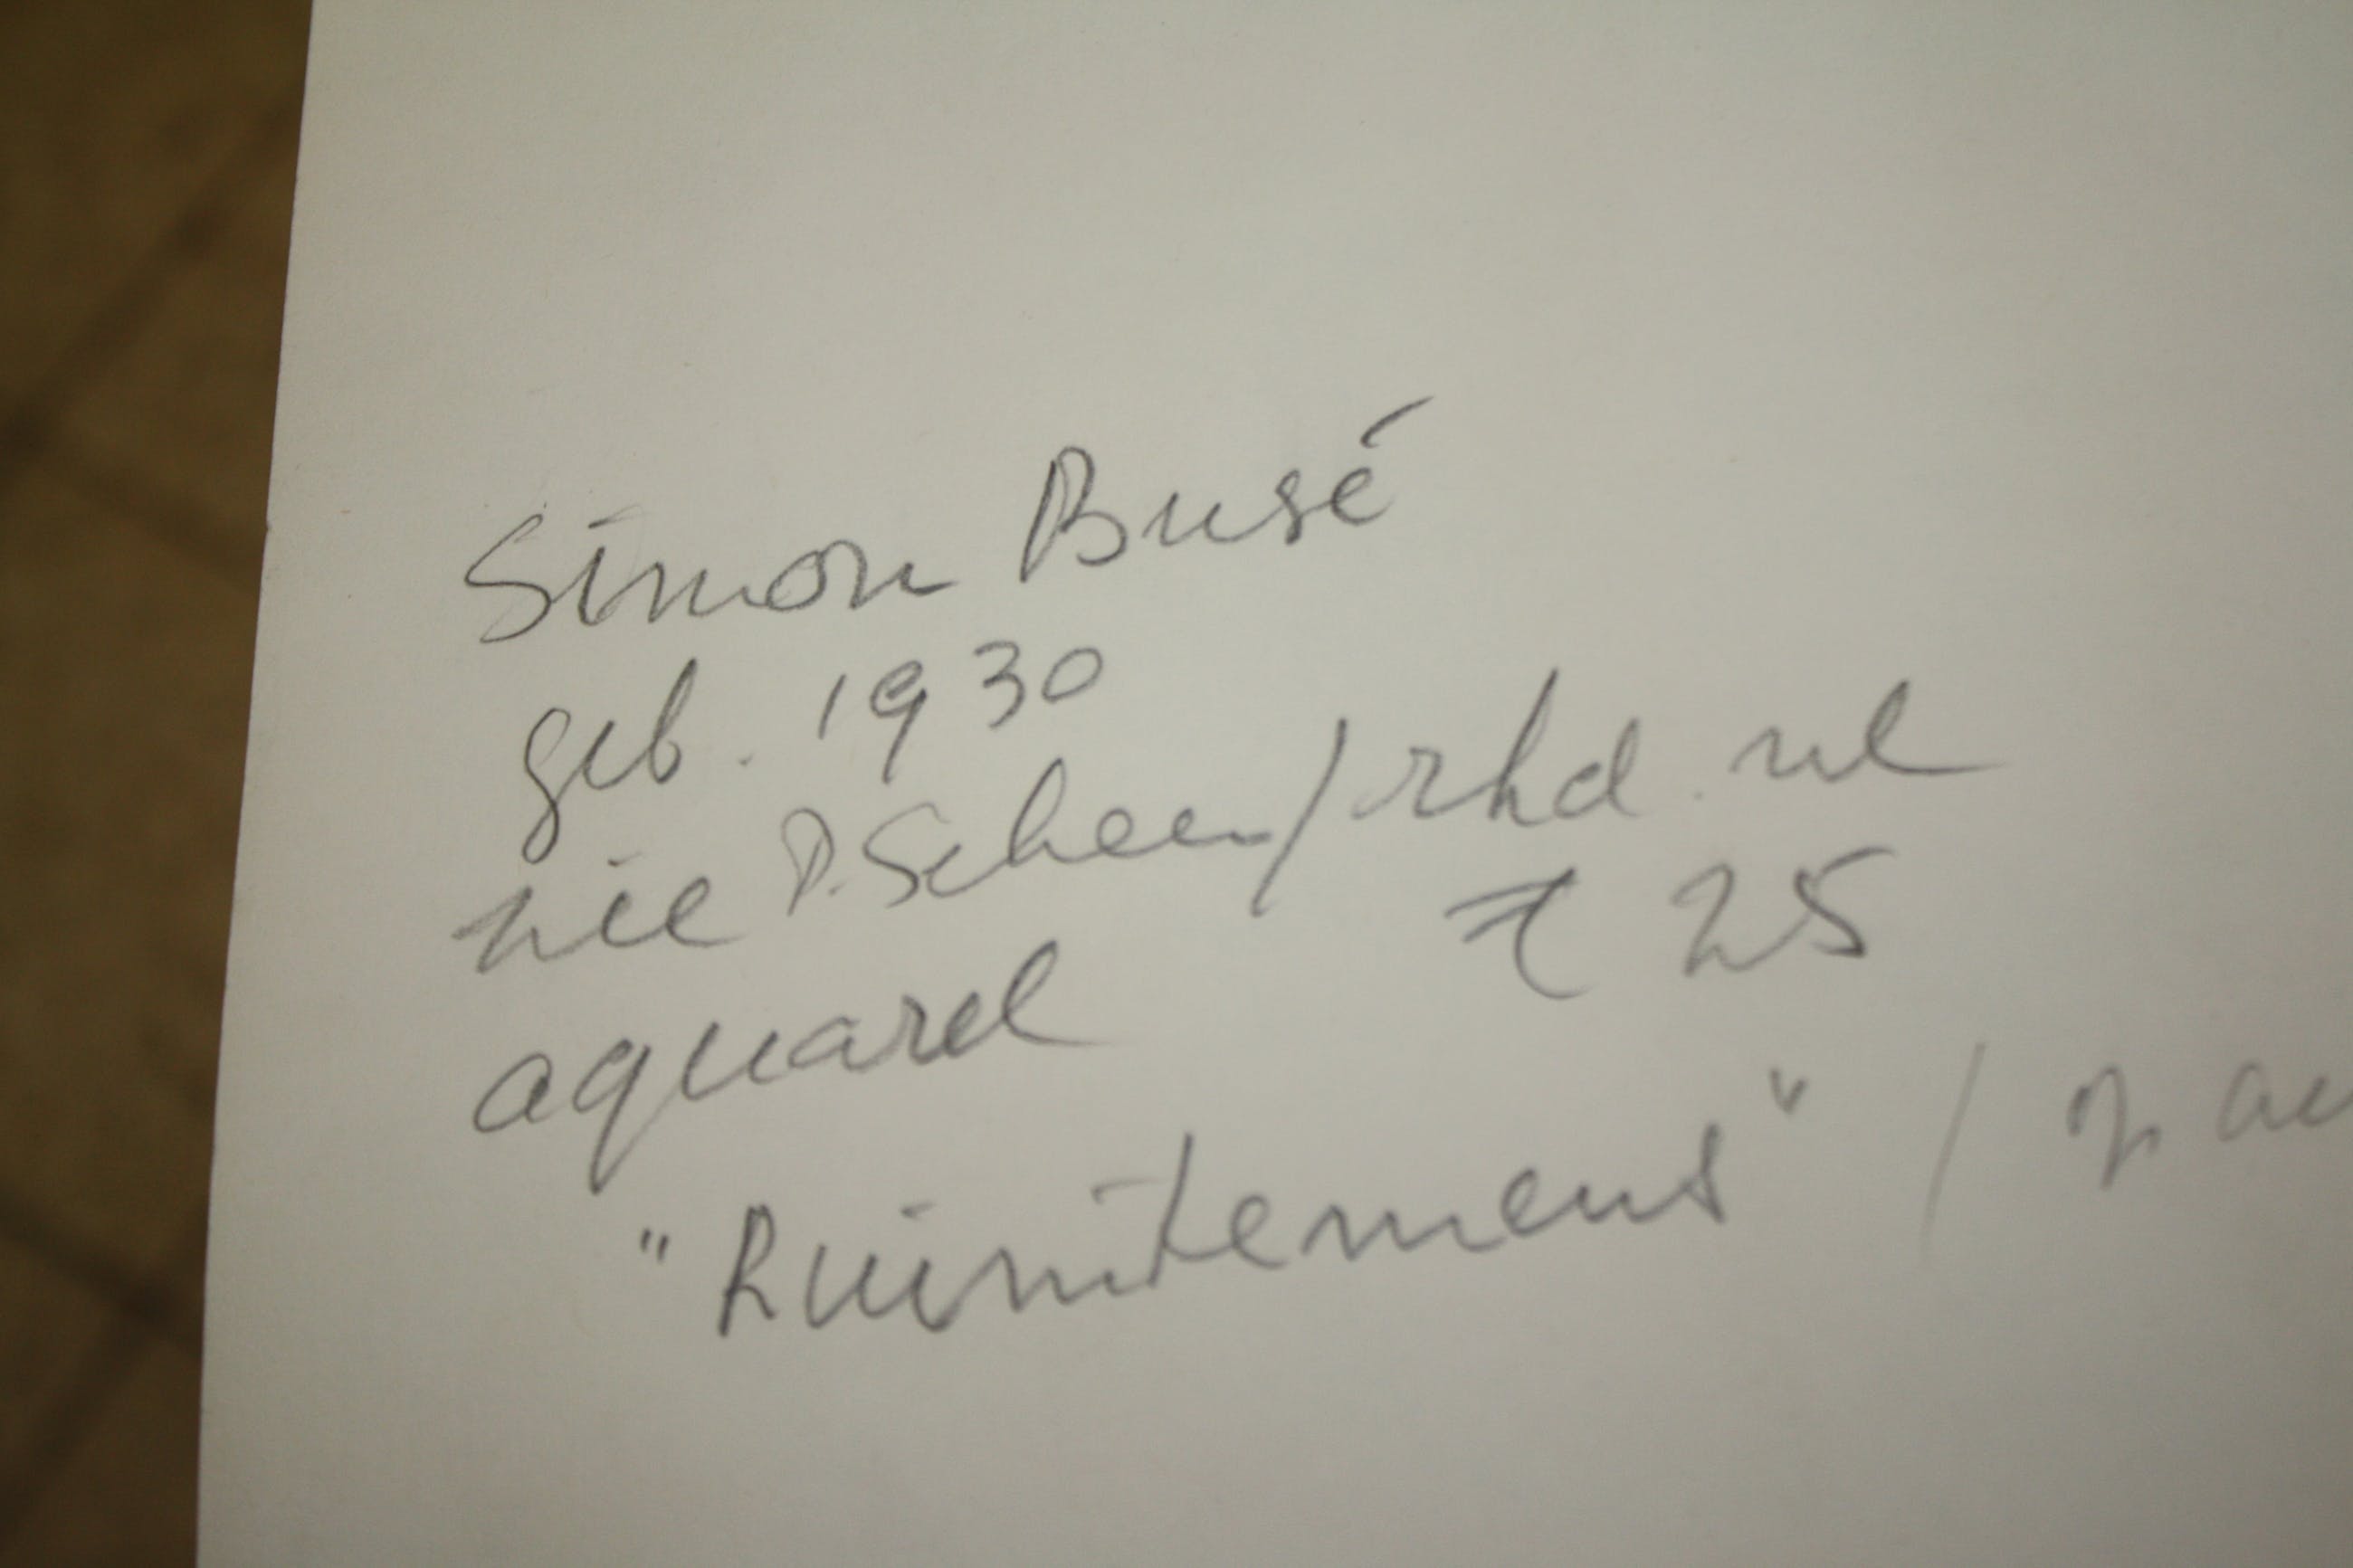 Simon Busé
geb. 1930
zie P. Scheen / rkd. nl
aquarel € 25
"Ruimtemens" / op